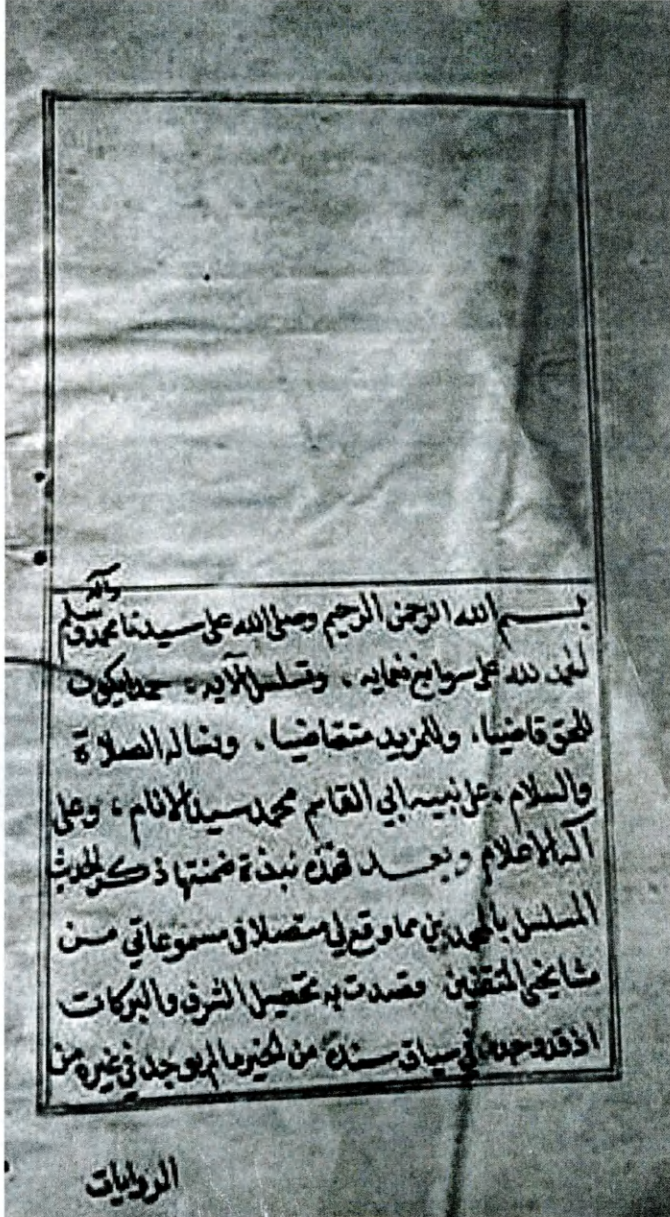 وآله
بسم الله الرحمن الرحيم وصلى الله على سيدنا محمد وسلم
الحمد لله على سوابغ نعمايه ، وتسلسل آلايه ، حمدا يكون
للحق قاضيا ، وللمزيد متقاضيا ، ونساله الصلاة
والسلام ، على نبيه ابي القاسم محمد سيد الانام ، وعلى
آله الاعلام وبعد فهذه نبذة ضمنتها ذكر الحديث
المسلسل بالمحمدين مما وقع لي متصلا في مسموعاتي من
مشايخي المتقنين قصدت به تحصيل الشرف والبركات
اذ قد وجدت في سياق سنده من الخير ما لم يوجد في غيره من
الروايات